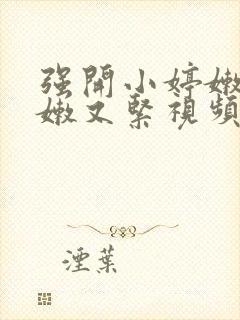 强開小婷嫩
嫩又緊視頻
湮葉